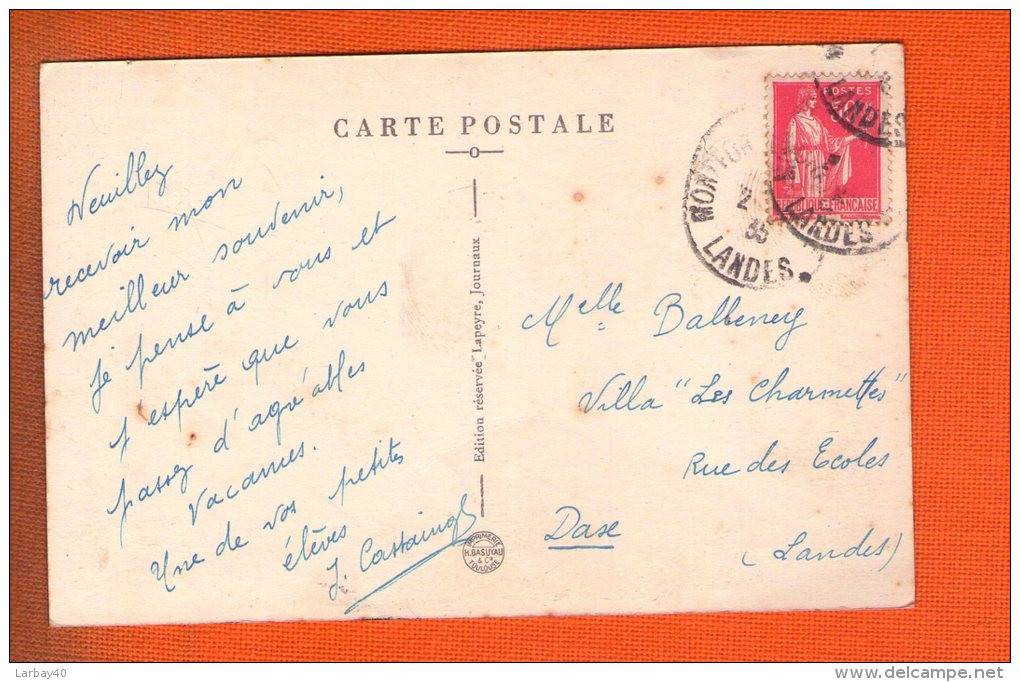 CARTE POSTALE
Veuillez
recevoir mon
meilleur souvenir,
je pense à vous et
j'espère que vous
passez d'agréables
vacances.
Une de vos petites
élèves
J. Castaings
Edition réservée Lapeyre, Journaux
IMPRIMERIE
H. BASUYAU
& Cie
TOULOUSE
POSTES
FRANÇAISE
LANDES
LANDES
35
LANDES
Melle Balbeney
Villa "Les Charmettes"
Rue des Ecoles
Dax
(Landes)
Larbay40
www.delcampe.net